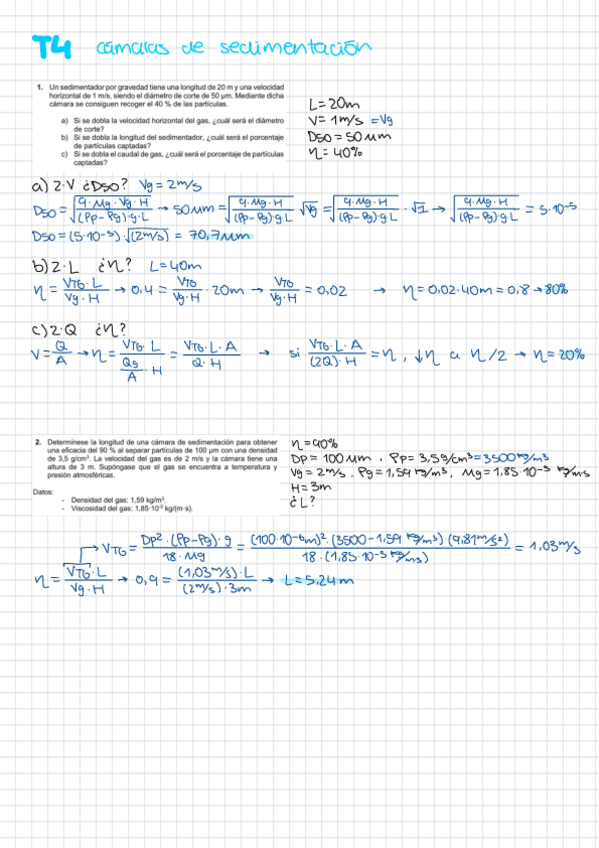 T4 cámaras de sedimentación
1. Un sedimentador por gravedad tiene una longitud de 20 m y una velocidad
horizontal de 1 m/s, siendo el diámetro de corte de 50 µm. Mediante dicha
cámara se consiguen recoger el 40 % de las partículas.
a) Si se dobla la velocidad horizontal del gas, ¿cuál será el diámetro
de corte?
b) Si se dobla la longitud del sedimentador, ¿cuál será el porcentaje
de partículas captadas?
c) Si se dobla el caudal de gas, ¿cuál será el porcentaje de partículas
captadas?
L=20m
V=1m/s =Vg
D50=50 µm
η=40%
a) 2·V ¿D50? Vg=2m/s
D50=√(9·Mg·Vg·H/(Pp-Pg)·g·L) → 50µm=√(9·Mg·H/(Pp-Pg)·g·L) √Vg =√(9·Mg·H/(Pp-Pg)·g·L) ·√1 → √(9·Mg·H/(Pp-Pg)·g·L) = 5·10⁻⁵
D50=(5·10⁻⁵)·√(2m/s) = 70,7µm
b) 2·L ¿η? L=40m
η= VTG·L/Vg·H → 0,4= VTG/Vg·H · 20m → VTG/Vg·H = 0,02 → η=0,02·40m=0,8→80%
c) 2·Q ¿η?
V= Q/A → η= VTG·L/(Qg/A ·H) = VTG·L·A/Q·H → si VTG·L·A/(2Q)·H =η, ↓η a η/2 → η=20%
2. Determínese la longitud de una cámara de sedimentación para obtener
una eficacia del 90 % al separar partículas de 100 µm con una densidad
de 3,5 g/cm³. La velocidad del gas es de 2 m/s y la cámara tiene una
altura de 3 m. Supóngase que el gas se encuentra a temperatura y
presión atmosféricas.
Datos:
- Densidad del gas: 1,59 kg/m³.
- Viscosidad del gas: 1,85·10⁻⁵ kg/(m·s).
η=90%
DP= 100µm, Pp= 3,5g/cm³=3500kg/m³
Vg=2m/s. Pg=1,59 kg/m³, Mg=1,85·10⁻⁵ kg/ms
H=3m
¿L?
→VTG= Dp²·(Pp-Pg)·g/18·Mg = (100·10⁻⁶m)²·(3500-1,59 kg/m³)·(9,81m/s²)/18·(1,85·10⁻⁵ kg/ms) = 1,03m/s
η= VTG·L/Vg·H → 0,9= (1,03m/s)·L/(2m/s)·3m → L=5,24m